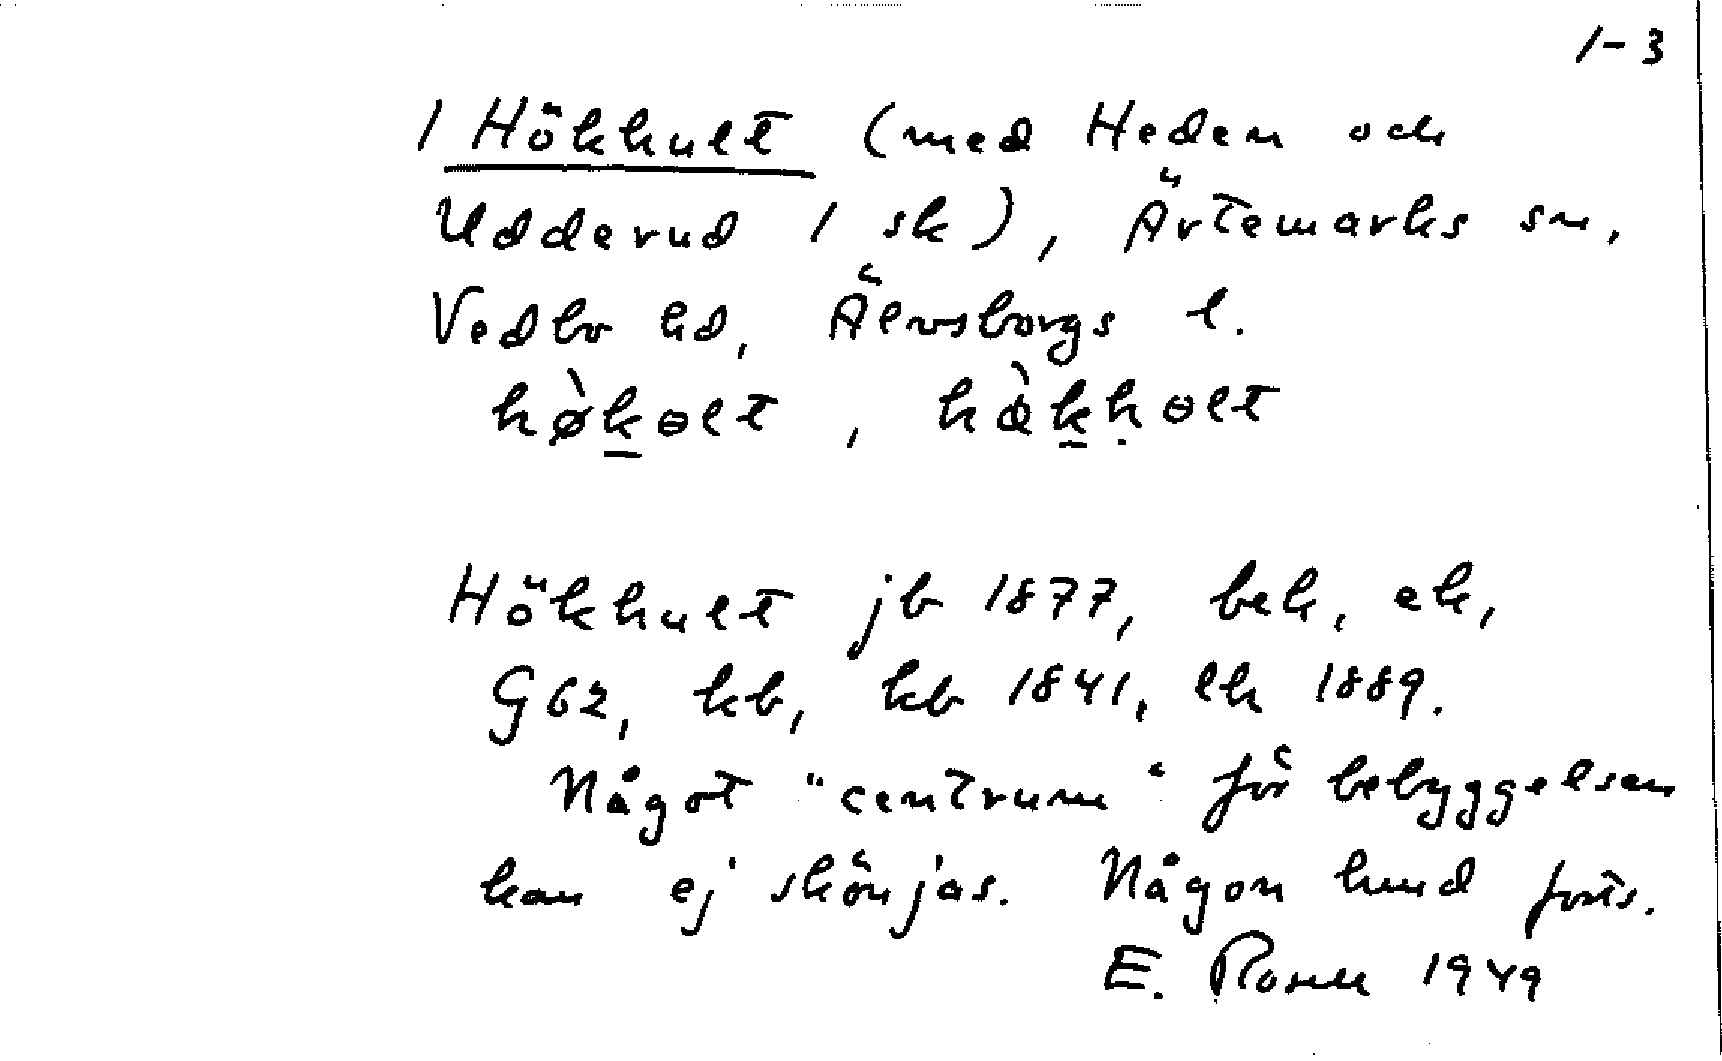 1-3
1 Hökhult (med Heden och
Udderud 1 sk), Ärtemarks sn,
Vedbo hd, Älvsborgs l.
hø̀kɵlt, hø̀kḥɵlt
Hökhult jb 1877, beh, ek,
G62, kb, kb 1841, lk 1889.
Något "centrum" för bebyggelsen
kan ej skönjas. Någon hund forts.
E. 1949